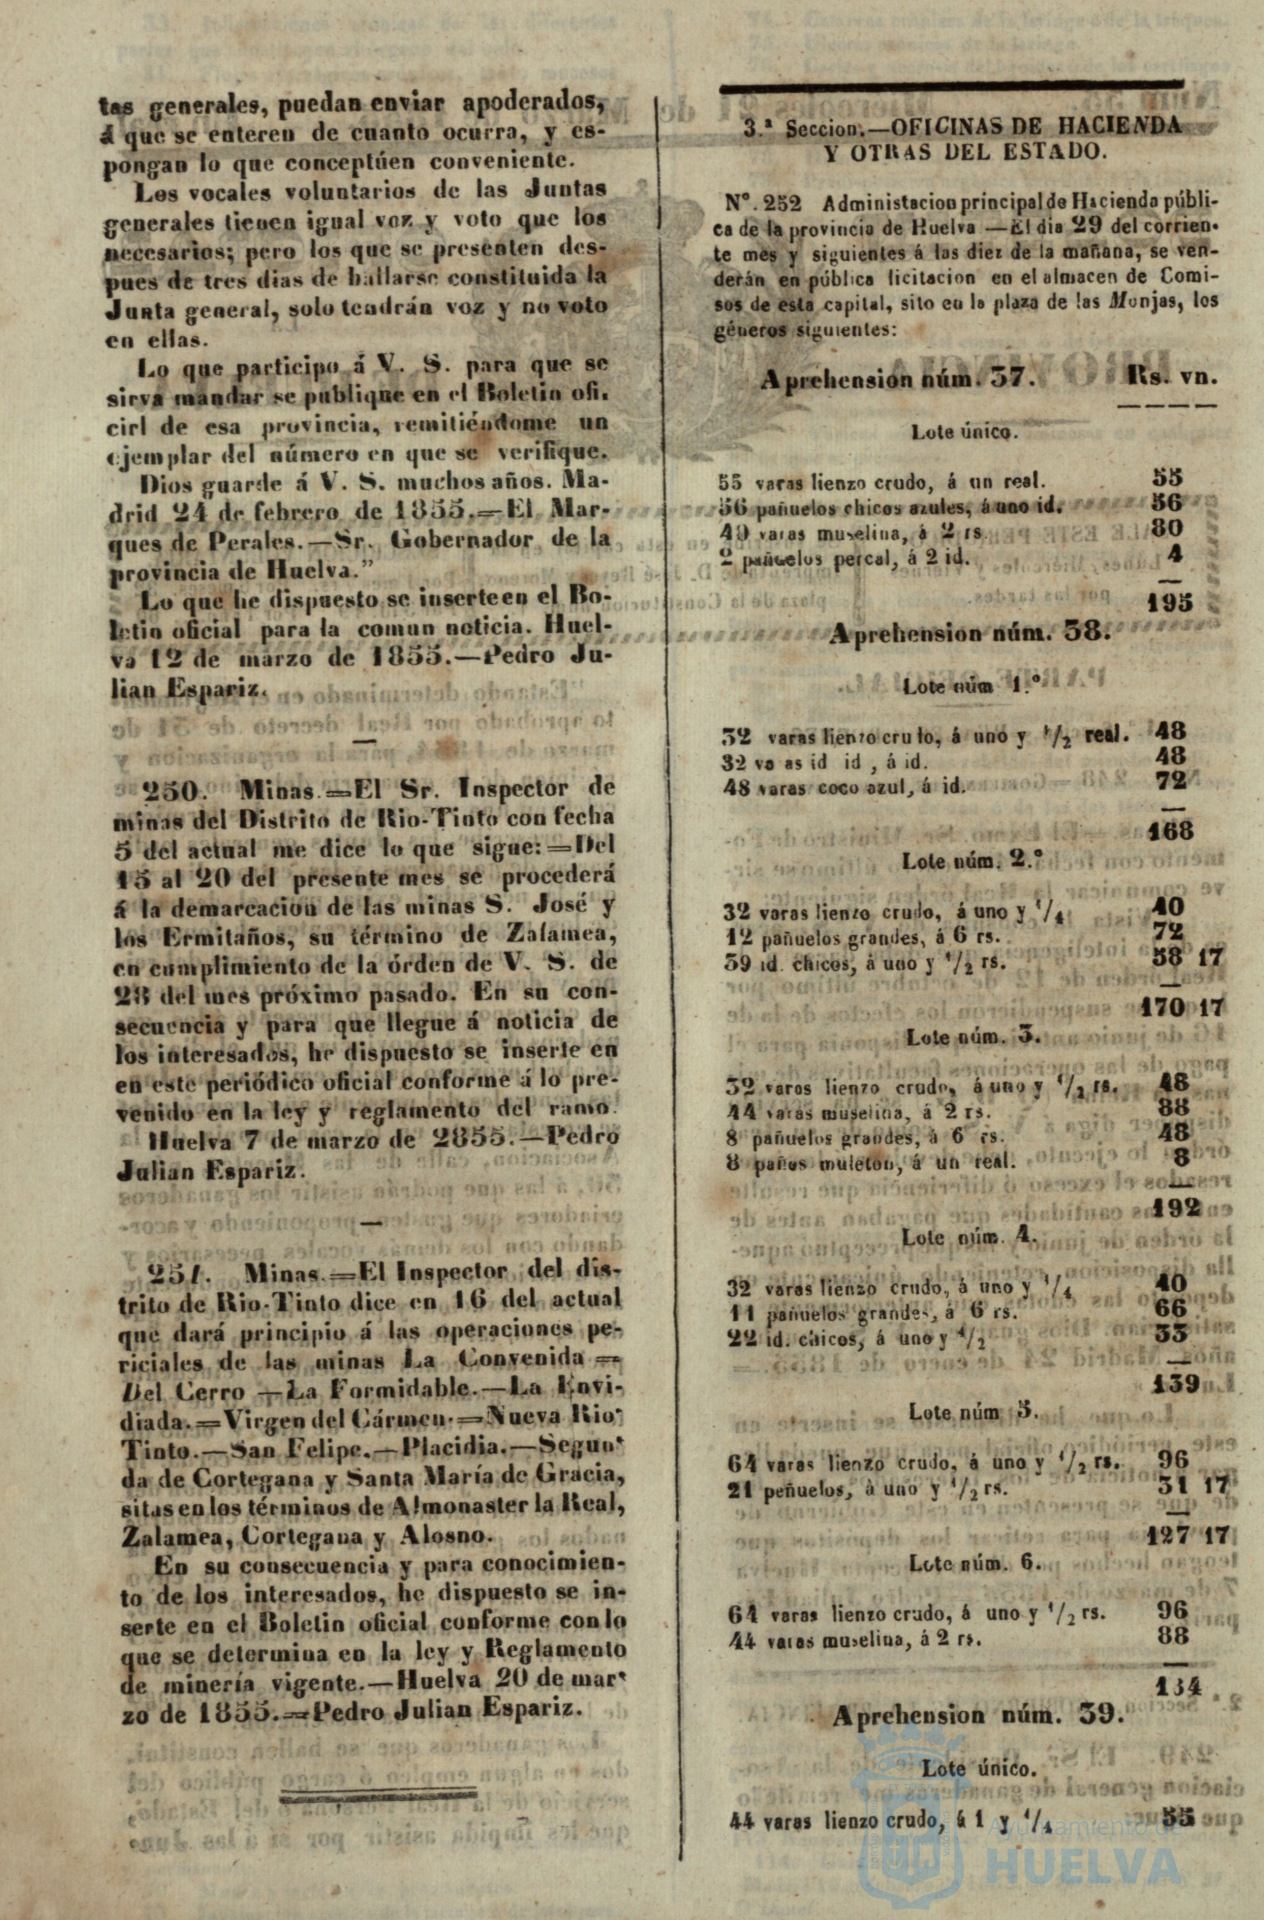 tas generales, puedan enviar apoderados,
á que se enteren de cuanto ocurra, y es-
pongan lo que conceptúen conveniente.
Los vocales voluntarios de las Juntas
generales tienen igual voz y voto que los
necesarios; pero los que se presenten des-
pues de tres dias de hallarse constituida la
Junta general, solo tendrán voz y no voto
en ellas.
Lo que participo á V. S. para que se
sirva mandar se publique en el Boletin ofi.
cirl de esa provincia, remitiéndome un
ejemplar del número en que se verifique.
Dios guarde á V. S. muchos años. Ma-
drid 24 de febrero de 1855.=El Mar-
ques de Perales.—Sr. Gobernador de la
provincia de Huelva.”
Lo que he dispuesto se inserte en el Bo-
letin oficial para la comun noticia. Huel-
va 12 de marzo de 1855.—Pedro Ju-
lian Espariz.
250. Minas.=El Sr. Inspector de
minas del Distrito de Rio-Tinto con fecha
5 del actual me dice lo que sigue:=Del
15 al 20 del presente mes se procederá
á la demarcacion de las minas S. José y
los Ermitaños, su término de Zalamea,
en cumplimiento de la órden de V. S. de
28 del mes próximo pasado. En su con-
secuencia y para que llegue á noticia de
los interesados, he dispuesto se inserte en
en este periódico oficial conforme á lo pre-
venido en la ley y reglamento del ramo.
Huelva 7 de marzo de 2855.—Pedro
Julian Espariz.
251. Minas.=El Inspector del dis-
trito de Rio-Tinto dice en 16 del actual
que dará principio á las operaciones pe-
riciales de las minas La Convenida=
Del Cerro—La Formidable.—La Envi-
diada.=Virgen del Cármen.=Nueva Rio
Tinto.—San Felipe.—Placidia.—Segun-
da de Cortegana y Santa María de Gracia,
sitas en los términos de Almonaster la Real,
Zalamea, Cortegana y Alosno.
En su consecuencia y para conocimien-
to de los interesados, he dispuesto se in-
serte en el Boletin oficial conforme con lo
que se determina en la ley y Reglamento
de minería vigente.—Huelva 20 de mar-
zo de 1855.=Pedro Julian Espariz.
3.ª Seccion.—OFICINAS DE HACIENDA
Y OTRAS DEL ESTADO.
Nº. 252 Administacion principal de Hacienda públi-
ca de la provincia de Huelva—El dia 29 del corrien-
te mes y siguientes á las diez de la mañana, se ven-
derán en pública licitacion en el almacen de Comi-
sos de esta capital, sito en la plaza de las Monjas, los
géneros siguientes:
Aprehension núm. 37. Rs. vn.
Lote único.
55 varas lienzo crudo, á un real. 55
56 pañuelos chicos azules, á uno id. 56
40 varas muselina, á 2 rs 80
2 pañuelos percal, á 2 id. 4
195
Aprehension núm. 38.
Lote núm 1.º
32 varas lienzo crudo, á uno y 1/2 real. 48
32 va as id id , á id. 48
48 varas coco azul, á id. 72
168
Lote núm. 2.º
32 varas lienzo crudo, á uno y 1/4 40
12 pañuelos grandes, á 6 rs. 72
39 id. chicos, á uno y 1/2 rs. 58 17
170 17
Lote núm. 3.
32 varas lienzo crudo, á uno y 1/2 rs. 48
44 varas muselina, á 2 rs. 88
8 pañuelos grandes, á 6 rs. 48
8 paños muleton, á un real. 8
192
Lote núm. 4.
32 varas lienzo crudo, á uno y 1/4 40
11 pañuelos grandes, á 6 rs. 66
22 id. chicos, á uno y 1/2 33
139
Lote núm 5.
64 varas lienzo crudo, á uno y 1/2 rs. 96
21 peñuelos, á uno y 1/2 rs. 31 17
127 17
Lote núm. 6.
64 varas lienzo crudo, á uno y 1/2 rs. 96
44 varas muselina, á 2 rs. 88
134
Aprehension núm. 39.
Lote único.
44 varas lienzo crudo, á 1 y 1/4 55
Ayuntamiento de
HUELVA